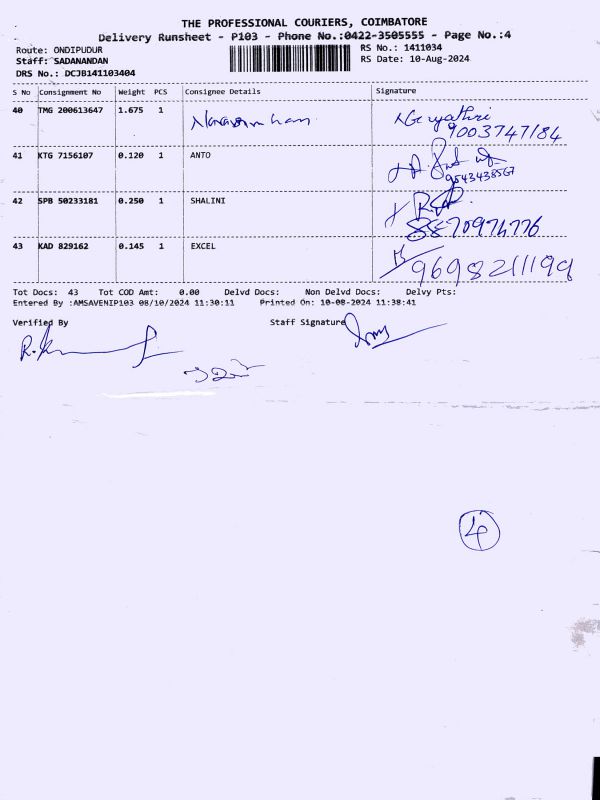 THE PROFESSIONAL COURIERS, COIMBATORE
Delivery Runsheet - P103 - Phone No.:0422-3505555 - Page No.:4
Route: ONDIPUDUR
RS No.: 1411034
Staff: SADANANDAN
RS Date: 10-Aug-2024
DRS No.: DCJB141103404
S No Consignment No Weight PCS Consignee Details Signature
40 TMG 200613647 1.675 1 Narasimhan Gayathri
9003747184
41 KTG 7156107 0.120 1 ANTO
9543438567
42 SPB 50233181 0.250 1 SHALINI
8870974776
43 KAD 829162 0.145 1 EXCEL
9698211199
Tot Docs: 43 Tot COD Amt: 0.00 Delvd Docs: Non Delvd Docs: Delvy Pts:
Entered By :AMSAVENIP103 08/10/2024 11:30:11 Printed On: 10-08-2024 11:38:41
Verified By Staff Signature
4